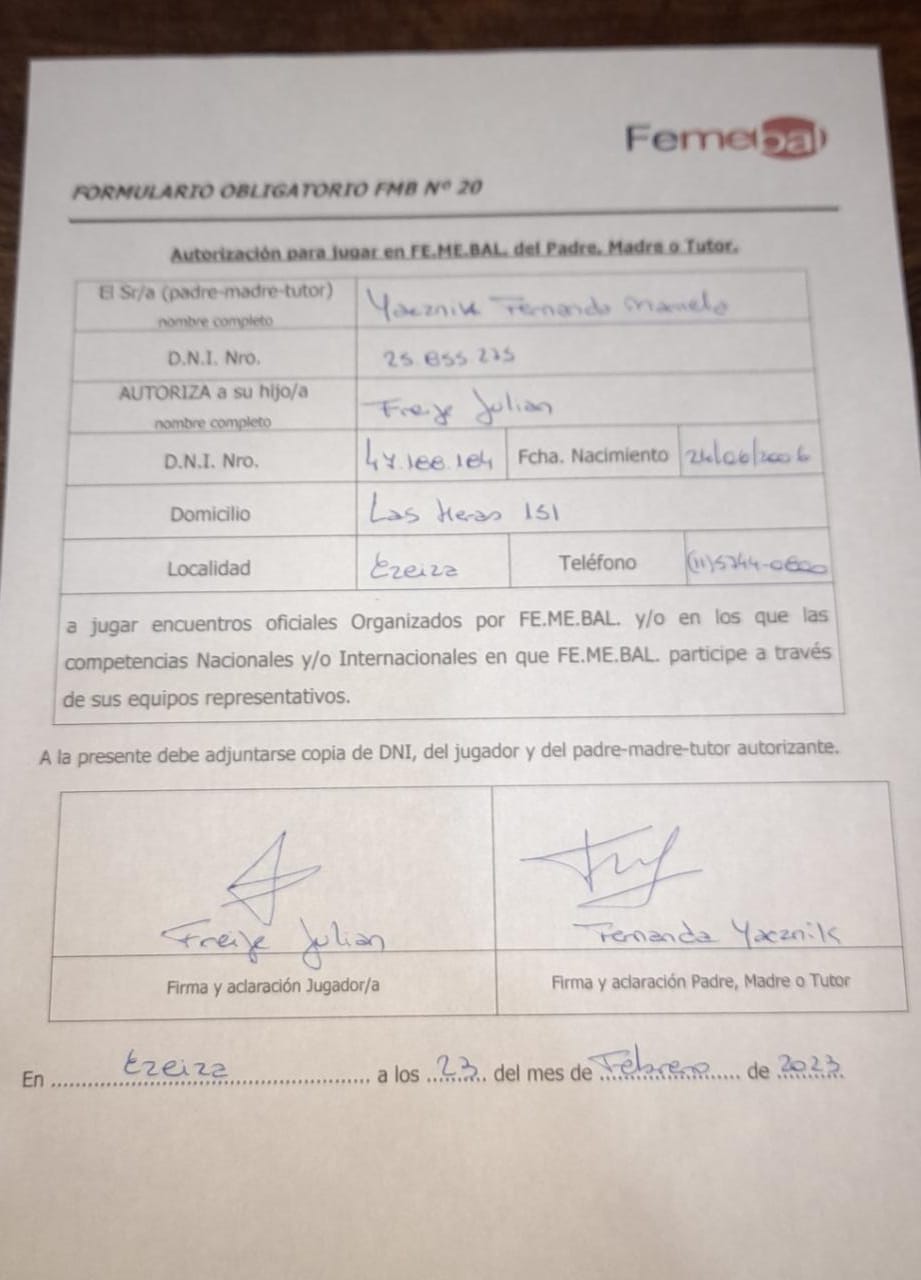 Femebal
FORMULARIO OBLIGATORIO FMB Nº 20
Autorización para jugar en FE.ME.BAL. del Padre, Madre o Tutor.
El Sr/a (padre-madre-tutor) nombre completo Yacznik Fernanda
D.N.I. Nro. 25.855.275
AUTORIZA a su hijo/a nombre completo Freije Julian
D.N.I. Nro. 47.188.184 Fcha. Nacimiento
Domicilio Las Heras 151
Localidad Ezeiza Teléfono
a jugar encuentros oficiales Organizados por FE.ME.BAL. y/o en los que las
competencias Nacionales y/o Internacionales en que FE.ME.BAL. participe a través
de sus equipos representativos.
A la presente debe adjuntarse copia de DNI, del jugador y del padre-madre-tutor autorizante.
Freije Julian
Fernanda Yacznik
Firma y aclaración Jugador/a
Firma y aclaración Padre, Madre o Tutor
En Ezeiza a los 23 del mes de Febrero de 2023